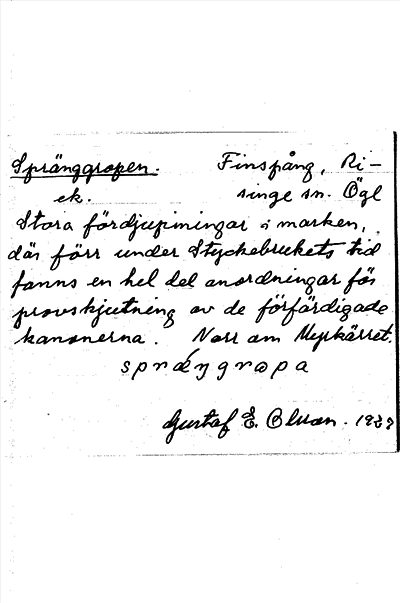 Spränggropen. Finspång, Ri-
ek. singe sn. Ögl
Stora fördjupningar i marken,
där förr under Styckebrukets tid
fanns en hel del anordningar för
provskjutning av de förfärdigade
kanonerna. Norr om Myrkärret.
sprǽŋgropa
Gustaf E. Olsson. 1927